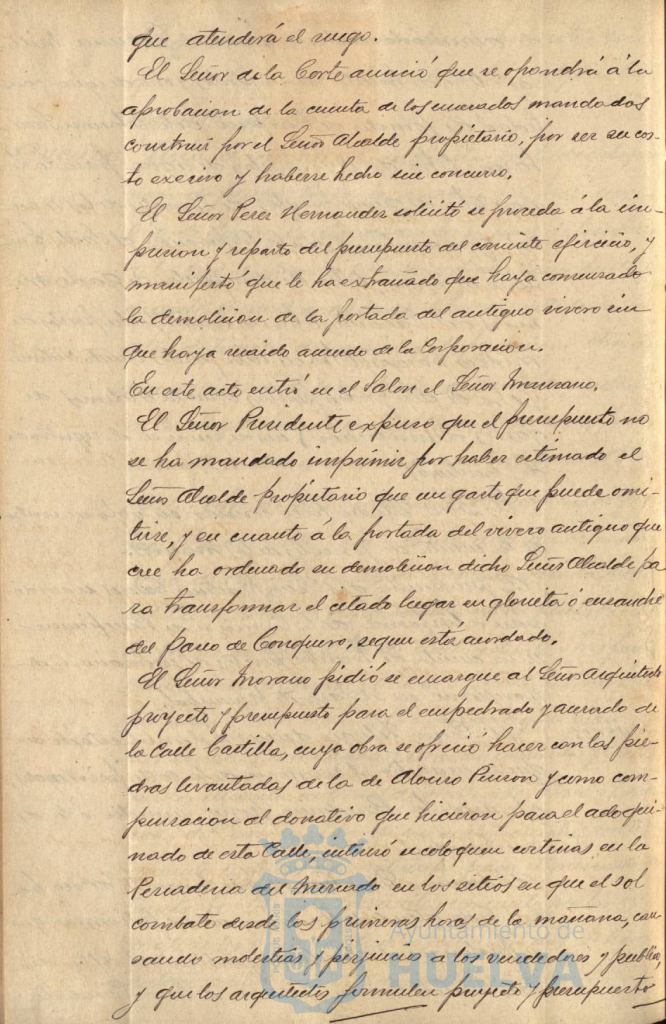 que atenderá el ruego.
El Señor de la Corte anunció que se opondrá á la
aprobacion de la cuenta de los encerados mandados
construir por el Señor Alcalde propietario, por ser su cos-
to excesivo y haberse hecho sin concurso.
El Señor Perez Hernandez solicitó se proceda á la im-
presion y reparto del presupuesto del corriente ejercicio, y
manifestó que le ha extrañado que haya comenzado
la demolicion de la portada del antiguo vivero sin
que haya recaido acuerdo de la Corporacion.
En este acto entró en el Salon el Señor Manzano.
El Señor Presidente expuso que el presupuesto no
se ha mandado imprimir por haber estimado el
Señor Alcalde propietario que es un gasto que puede omi-
tirse, y en cuanto á la portada del vivero antiguo que
cree ha ordenado su demolicion dicho Señor Alcalde pa
ra transformar el citado lugar en glorieta ó ensanche
del Paseo de Conquero, segun está acordado.
El Señor Morano pidió se encargue al Señor Arquitecto
proyecto y presupuesto para el empedrado y acerado de
la Calle Castilla, cuya obra se ofreció hacer con las pie-
dras levantadas de la de Alonso Pinzon y como com-
pensacion al donativo que hicieron para el adoqui-
nado de esta Calle, interesó se coloquen cortinas en la
Pescaderia del Mercado en los sitios en que el sol
combate desde las primeras horas de la mañana, cau
sando molestias y perjuicios a los vendedores y publico,
y que los arquitectos formulen proyecto y presupuesto
Ayuntamiento de
HUELVA